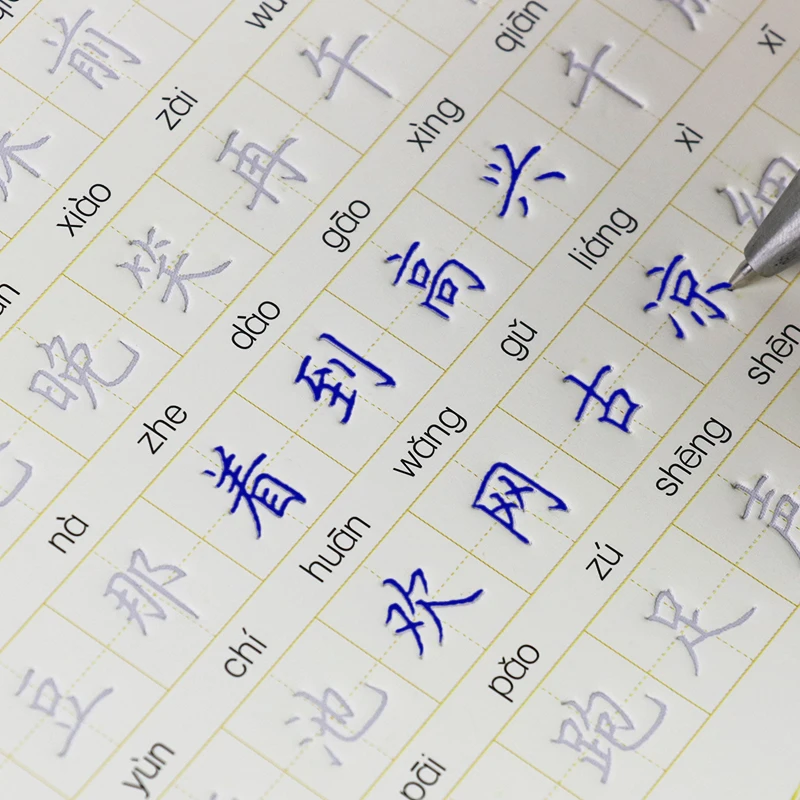 前
xiào zài
晚 笑 再 午
nà zhe dào gāo xìng qiān
豆 那 着 到 高 兴 千
yùn chí huān wǎng gǔ liáng xì xī
池 欢 网 古 凉 细
pāi pǎo zú shēng shēn
跑 足 声